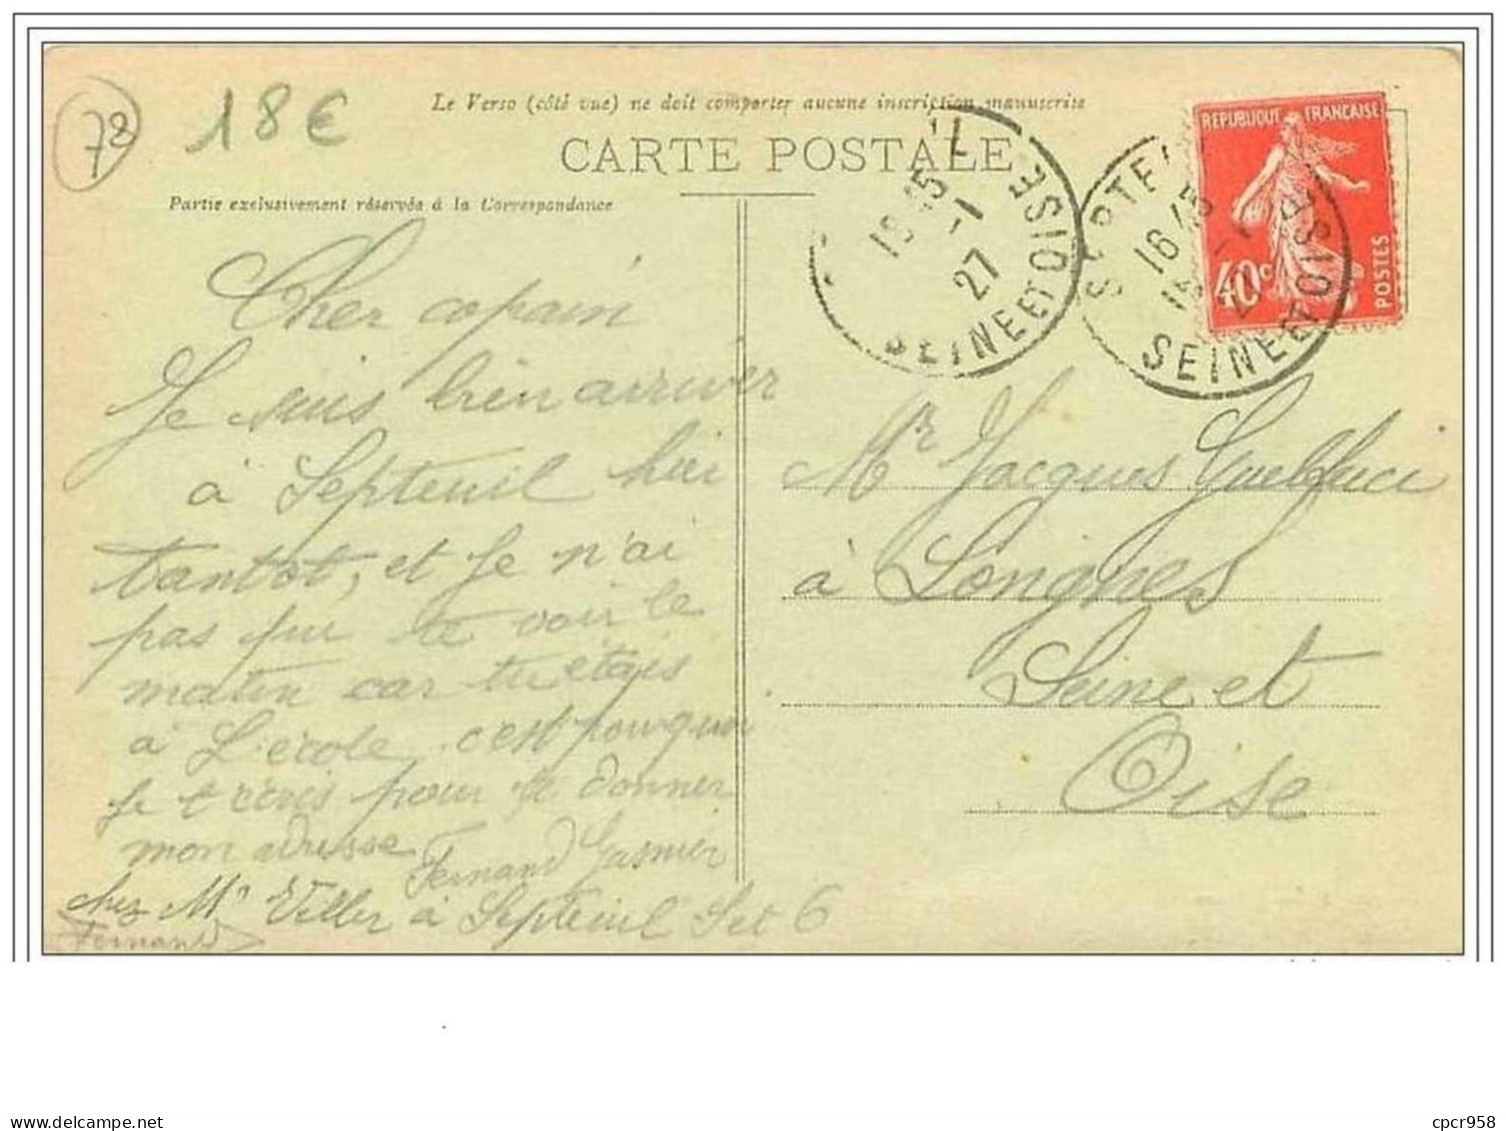 78
18€
Le Verso (côté vue) ne doit comporter aucune inscription manuscrite
CARTE POSTALE
Partie exclusivement réservée à la Correspondance
REPUBLIQUE FRANÇAISE
40c
POSTES
27
SEINE ET OISE
16 45
SEINE ET OISE
Cher copain
Je suis bien arriver
à Septeuil hier
tantot, et je n'ai
pas pu te voir le
matin car tu étais
à L'école, c'est pourquoi
je t'écris pour te donner
mon adresse
Fernand Gasnier
chez Mr Veller à Septeuil S et O
Fernand
Mr Jacques
à Longnes
Seine et
Oise
cpcr958